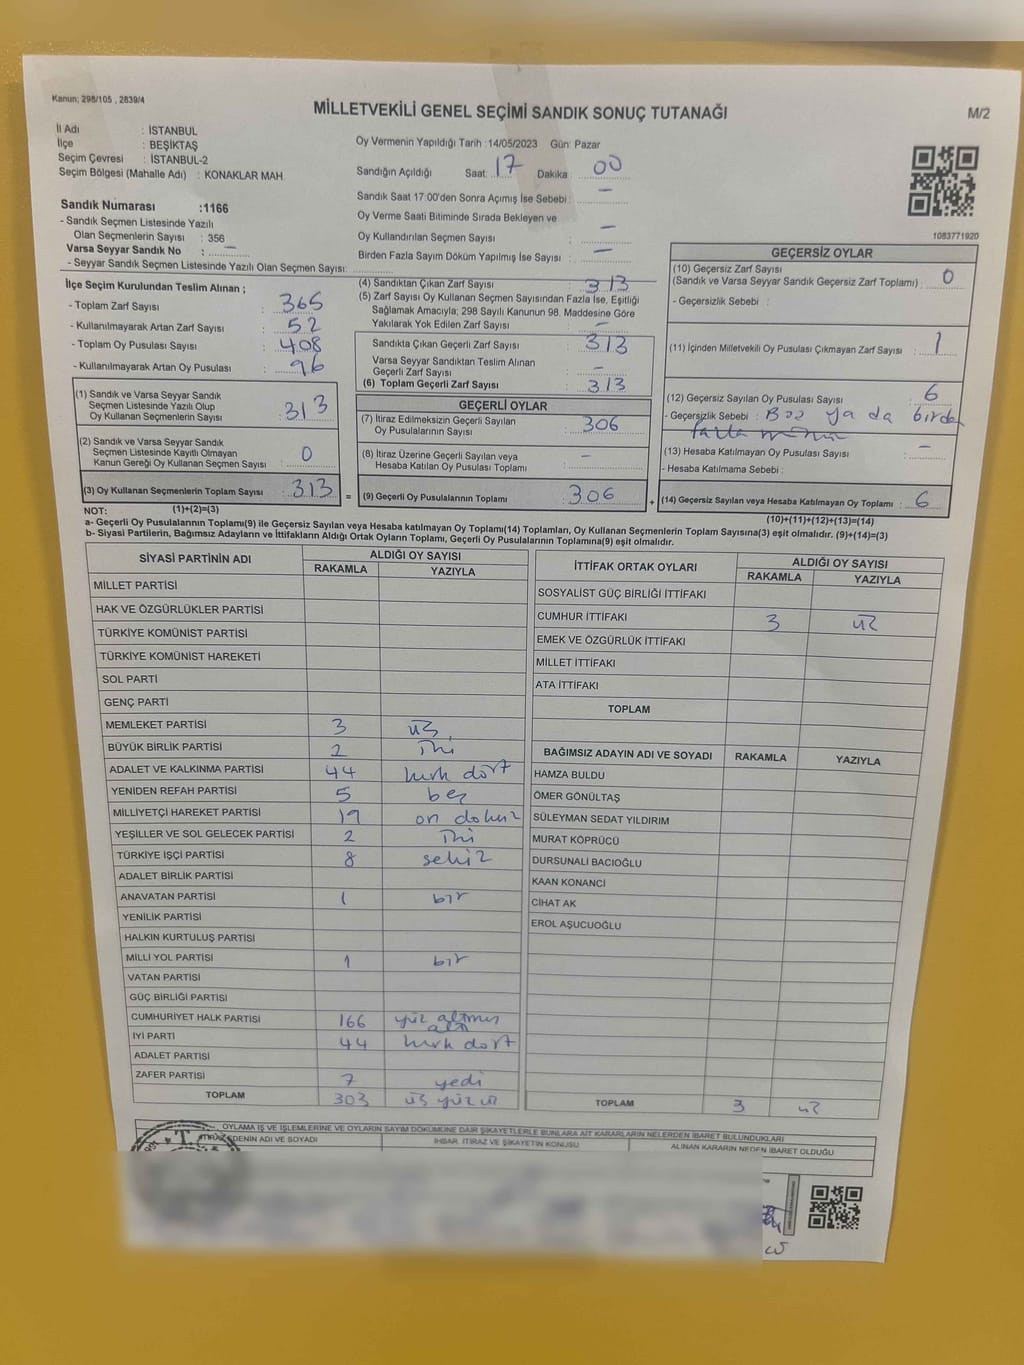 Kanun; 298/105 , 2839/4
MİLLETVEKİLİ GENEL SEÇİMİ SANDIK SONUÇ TUTANAĞI
M/2
İl Adı : İSTANBUL
İlçe : BEŞİKTAŞ
Seçim Çevresi : İSTANBUL-2
Seçim Bölgesi (Mahalle Adı) : KONAKLAR MAH.
Oy Vermenin Yapıldığı Tarih :14/05/2023 Gün: Pazar
Sandığın Açıldığı Saat: 17 Dakika: 00
Sandık Saat 17:00'den Sonra Açımış İse Sebebi : –
Oy Verme Saati Bitiminde Sırada Bekleyen ve
Oy Kullandırılan Seçmen Sayısı : –
Birden Fazla Sayım Döküm Yapılmış İse Sayısı : –
Sandık Numarası :1166
- Sandık Seçmen Listesinde Yazılı
Olan Seçmenlerin Sayısı : 356
Varsa Seyyar Sandık No : –
- Seyyar Sandık Seçmen Listesinde Yazılı Olan Seçmen Sayısı:
1083771920
İlçe Seçim Kurulundan Teslim Alınan ;
- Toplam Zarf Sayısı : 365
- Kullanılmayarak Artan Zarf Sayısı : 52
- Toplam Oy Pusulası Sayısı : 408
- Kullanılmayarak Artan Oy Pusulası : 96
(1) Sandık ve Varsa Seyyar Sandık
Seçmen Listesinde Yazılı Olup
Oy Kullanan Seçmenlerin Sayısı : 313
(2) Sandık ve Varsa Seyyar Sandık
Seçmen Listesinde Kayıtlı Olmayan
Kanun Gereği Oy Kullanan Seçmen Sayısı : 0
(3) Oy Kullanan Seçmenlerin Toplam Sayısı : 313
(1)+(2)=(3)
(4) Sandıktan Çıkan Zarf Sayısı : 313
(5) Zarf Sayısı Oy Kullanan Seçmen Sayısından Fazla İse, Eşitliği
Sağlamak Amacıyla; 298 Sayılı Kanunun 98. Maddesine Göre
Yakılarak Yok Edilen Zarf Sayısı : –
Sandıkta Çıkan Geçerli Zarf Sayısı : 313
Varsa Seyyar Sandıktan Teslim Alınan
Geçerli Zarf Sayısı : –
(6) Toplam Geçerli Zarf Sayısı : 313
GEÇERLİ OYLAR
(7) İtiraz Edilmeksizin Geçerli Sayılan
Oy Pusulalarının Sayısı : 306
(8) İtiraz Üzerine Geçerli Sayılan veya
Hesaba Katılan Oy Pusulası Toplamı : –
= (9) Geçerli Oy Pusulalarının Toplamı : 306
GEÇERSİZ OYLAR
(10) Geçersiz Zarf Sayısı
(Sandık ve Varsa Seyyar Sandık Geçersiz Zarf Toplamı) : 0
- Geçersizlik Sebebi :
(11) İçinden Milletvekili Oy Pusulası Çıkmayan Zarf Sayısı : 1
(12) Geçersiz Sayılan Oy Pusulası Sayısı : 6
- Geçersizlik Sebebi : Boş ya da birden
fazla mühür
(13) Hesaba Katılmayan Oy Pusulası Sayısı : –
- Hesaba Katılmama Sebebi :
+ (14) Geçersiz Sayılan veya Hesaba Katılmayan Oy Toplamı : 6
(10)+(11)+(12)+(13)=(14)
NOT:
a- Geçerli Oy Pusulalarının Toplamı(9) ile Geçersiz Sayılan veya Hesaba katılmayan Oy Toplamı(14) Toplamları, Oy Kullanan Seçmenlerin Toplam Sayısına(3) eşit olmalıdır. (9)+(14)=(3)
b- Siyasi Partilerin, Bağımsız Adayların ve İttifakların Aldığı Ortak Oyların Toplamı, Geçerli Oy Pusulalarının Toplamına(9) eşit olmalıdır.
SİYASİ PARTİNİN ADI ALDIĞI OY SAYISI
RAKAMLA YAZIYLA
MİLLET PARTİSİ
HAK VE ÖZGÜRLÜKLER PARTİSİ
TÜRKİYE KOMÜNİST PARTİSİ
TÜRKİYE KOMÜNİST HAREKETİ
SOL PARTİ
GENÇ PARTİ
MEMLEKET PARTİSİ 3 üç
BÜYÜK BİRLİK PARTİSİ 2 iki
ADALET VE KALKINMA PARTİSİ 44 kırk dört
YENİDEN REFAH PARTİSİ 5 beş
MİLLİYETÇİ HAREKET PARTİSİ 19 on dokuz
YEŞİLLER VE SOL GELECEK PARTİSİ 2 iki
TÜRKİYE İŞÇİ PARTİSİ 8 sekiz
ADALET BİRLİK PARTİSİ
ANAVATAN PARTİSİ 1 bir
YENİLİK PARTİSİ
HALKIN KURTULUŞ PARTİSİ
MİLLİ YOL PARTİSİ 1 bir
VATAN PARTİSİ
GÜÇ BİRLİĞİ PARTİSİ
CUMHURİYET HALK PARTİSİ 166 yüz altmış altı
İYİ PARTİ 44 kırk dört
ADALET PARTİSİ
ZAFER PARTİSİ 7 yedi
TOPLAM 303 üç yüz üç
İTTİFAK ORTAK OYLARI ALDIĞI OY SAYISI
RAKAMLA YAZIYLA
SOSYALİST GÜÇ BİRLİĞİ İTTİFAKI
CUMHUR İTTİFAKI 3 üç
EMEK VE ÖZGÜRLÜK İTTİFAKI
MİLLET İTTİFAKI
ATA İTTİFAKI
TOPLAM
BAĞIMSIZ ADAYIN ADI VE SOYADI RAKAMLA YAZIYLA
HAMZA BULDU
ÖMER GÖNÜLTAŞ
SÜLEYMAN SEDAT YILDIRIM
MURAT KÖPRÜCÜ
DURSUNALİ BACIOĞLU
KAAN KONANCİ
CİHAT AK
EROL AŞUCUOĞLU
TOPLAM 3 üç
OYLAMA İŞ VE İŞLEMLERİNE VE OYLARIN SAYIM DÖKÜMÜNE DAİR ŞİKAYETLERLE BUNLARA AİT KARARLARIN NELERDEN İBARET BULUNDUKLARI
İTİRAZ EDENİN ADI VE SOYADI İHBAR, İTİRAZ VE ŞİKAYETİN KONUSU ALINAN KARARIN NEDEN İBARET OLDUĞU